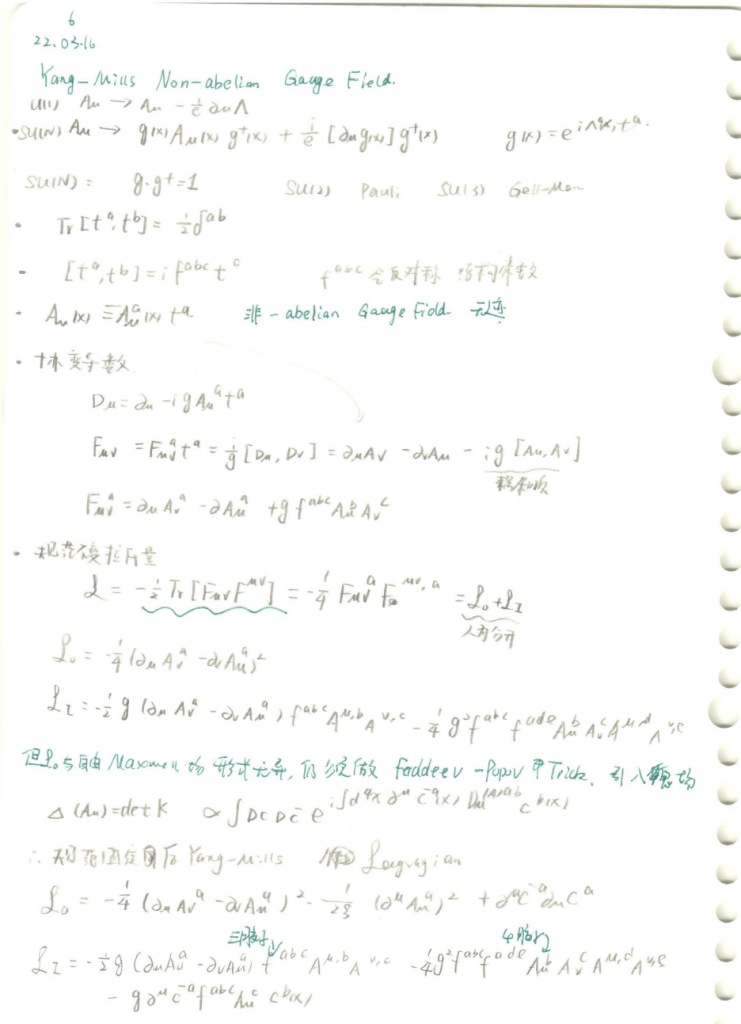 6
22.03.16
Yang-Mills Non-abelian Gauge Field.
U(1) Aμ → Aμ - 1/e ∂μΛ
• SU(N) Aμ → g(x)Aμ(x) g†(x) + i/e [∂μg(x)]g†(x) g(x) = e^{iΛ^a(x)t^a}.
SU(N): g·g†=1 SU(2) Pauli SU(3) Gell-Man
• Tr[t^a,t^b] = 1/2 δ^{ab}
• [t^a,t^b] = i f^{abc} t^c f^{abc} 全反对称 结构常数
• Aμ(x) ≡ Aμ^a(x) t^a. 非-abelian Gauge Field. 无迹
• 协变导数
Dμ = ∂μ - igAμ^a t^a
Fμν = Fμν^a t^a = i/g [Dμ, Dν] = ∂μAν - ∂νAμ - ig [Aμ, Aν]
Fμν^a = ∂μAν^a - ∂νAμ^a + g f^{abc} Aμ^b Aν^c
• 规范
L = -1/2 Tr[FμνF^{μν}] = -1/4 Fμν^a F^{μν,a} = L₀ + L_I
人为分开
L₀ = -1/4 (∂μAν^a - ∂νAμ^a)²
L_I = -1/2 g (∂μAν^a - ∂νAμ^a) f^{abc} A^{μ,b} A^{ν,c} - 1/4 g² f^{abc} f^{ade} Aμ^b Aν^c A^{μ,d} A^{ν,e}
但L₀与自由Maxwell场 形式无异, 仍须做 Faddeev-Popov Trick, 引入鬼场
Δ(Aμ) = det K ∝ ∫Dc Dc̄ e^{i∫d⁴x ∂^μ c̄^a(x) Dμ^{(A)ab} c^b(x)}
∴ 规范固定后 Yang-Mills Lagragian
L₀ = -1/4 (∂μAν^a - ∂νAμ^a)² - 1/2ξ (∂^μAμ^a)² + ∂^μ c̄^a ∂μ c^a
L_I = -1/2 g (∂μAν^a - ∂νAμ^a) f^{abc} A^{μ,b} A^{ν,c} - 1/4 g² f^{abc} f^{ade} Aμ^b Aν^c A^{μ,d} A^{ν,e}
- g ∂^μ c̄^a f^{abc} Aμ^c c^b(x)